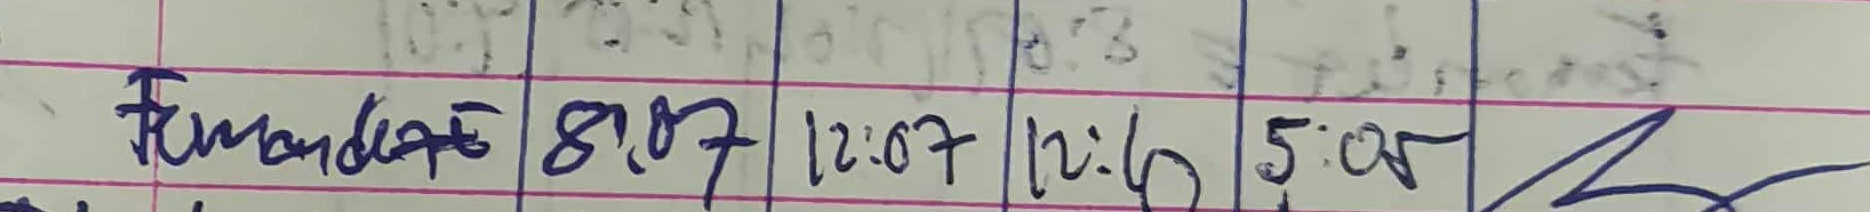 Fernandez E 8:07 12:07 12:40 5:05